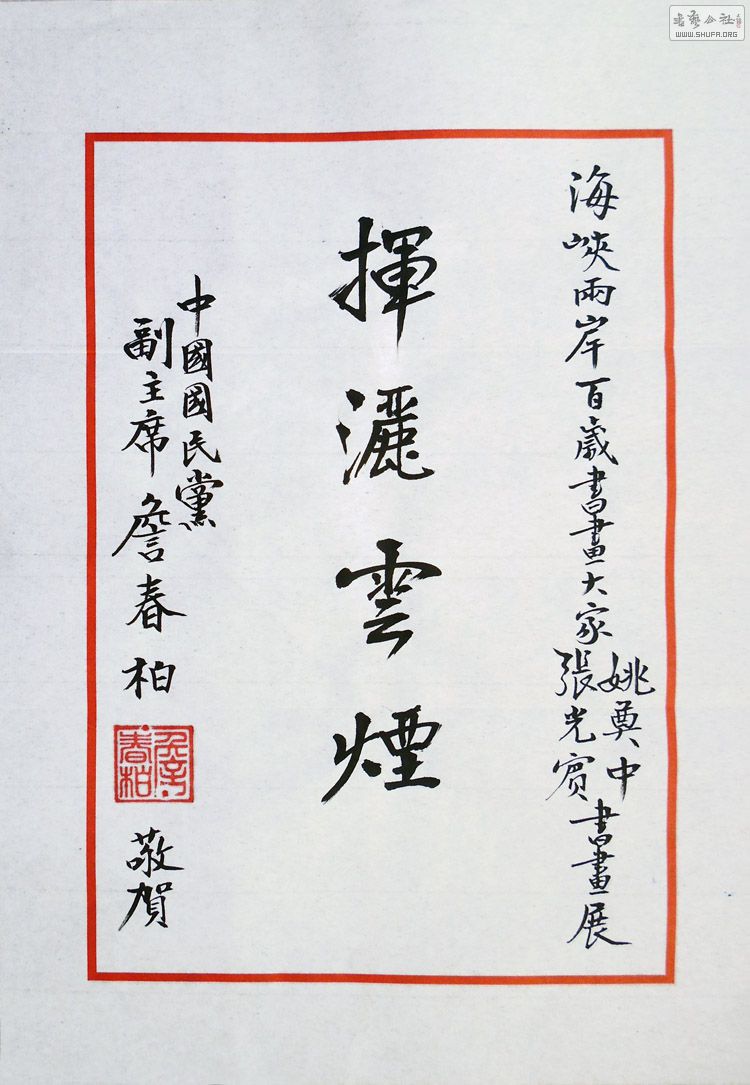 海峽兩岸百歲書畫大家姚奠中
張光賓書畫展
揮灑雲煙
中國國民黨
副主席詹春柏
敬賀
書藝公社
WWW.SHUFA.ORG